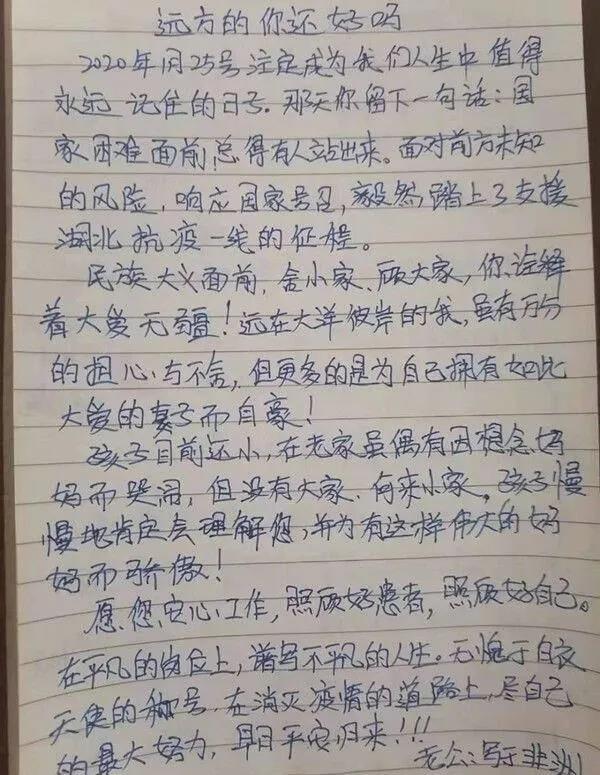 远方的你还好吗
2020年1月25号注定成为我们人生中值得
永远记住的日子.那天你留下一句话:国
家困难面前,总得有人站出来。面对前方未知
的风险,响应国家号召,毅然踏上了支援
湖北抗疫一线的征程。
民族大义面前,舍小家、顾大家,你诠释
着大爱无疆!远在大洋彼岸的我,虽有万分
的担心与不舍,但更多的是为自己拥有如此
大爱的妻子而自豪!
孩子目前还小,在老家虽偶有因想念妈
妈而哭闹,但没有大家、何来小家。孩子慢
慢地肯定会理解您,并为有这样伟大的妈
妈而骄傲!
愿您安心工作,照顾好患者,照顾好自己。
在平凡的岗位上,谱写不平凡的人生。无愧于白衣
天使的称号,在消灭疫情的道路上,尽自己
的最大努力,早日平安归来!!!
老公:写于非洲